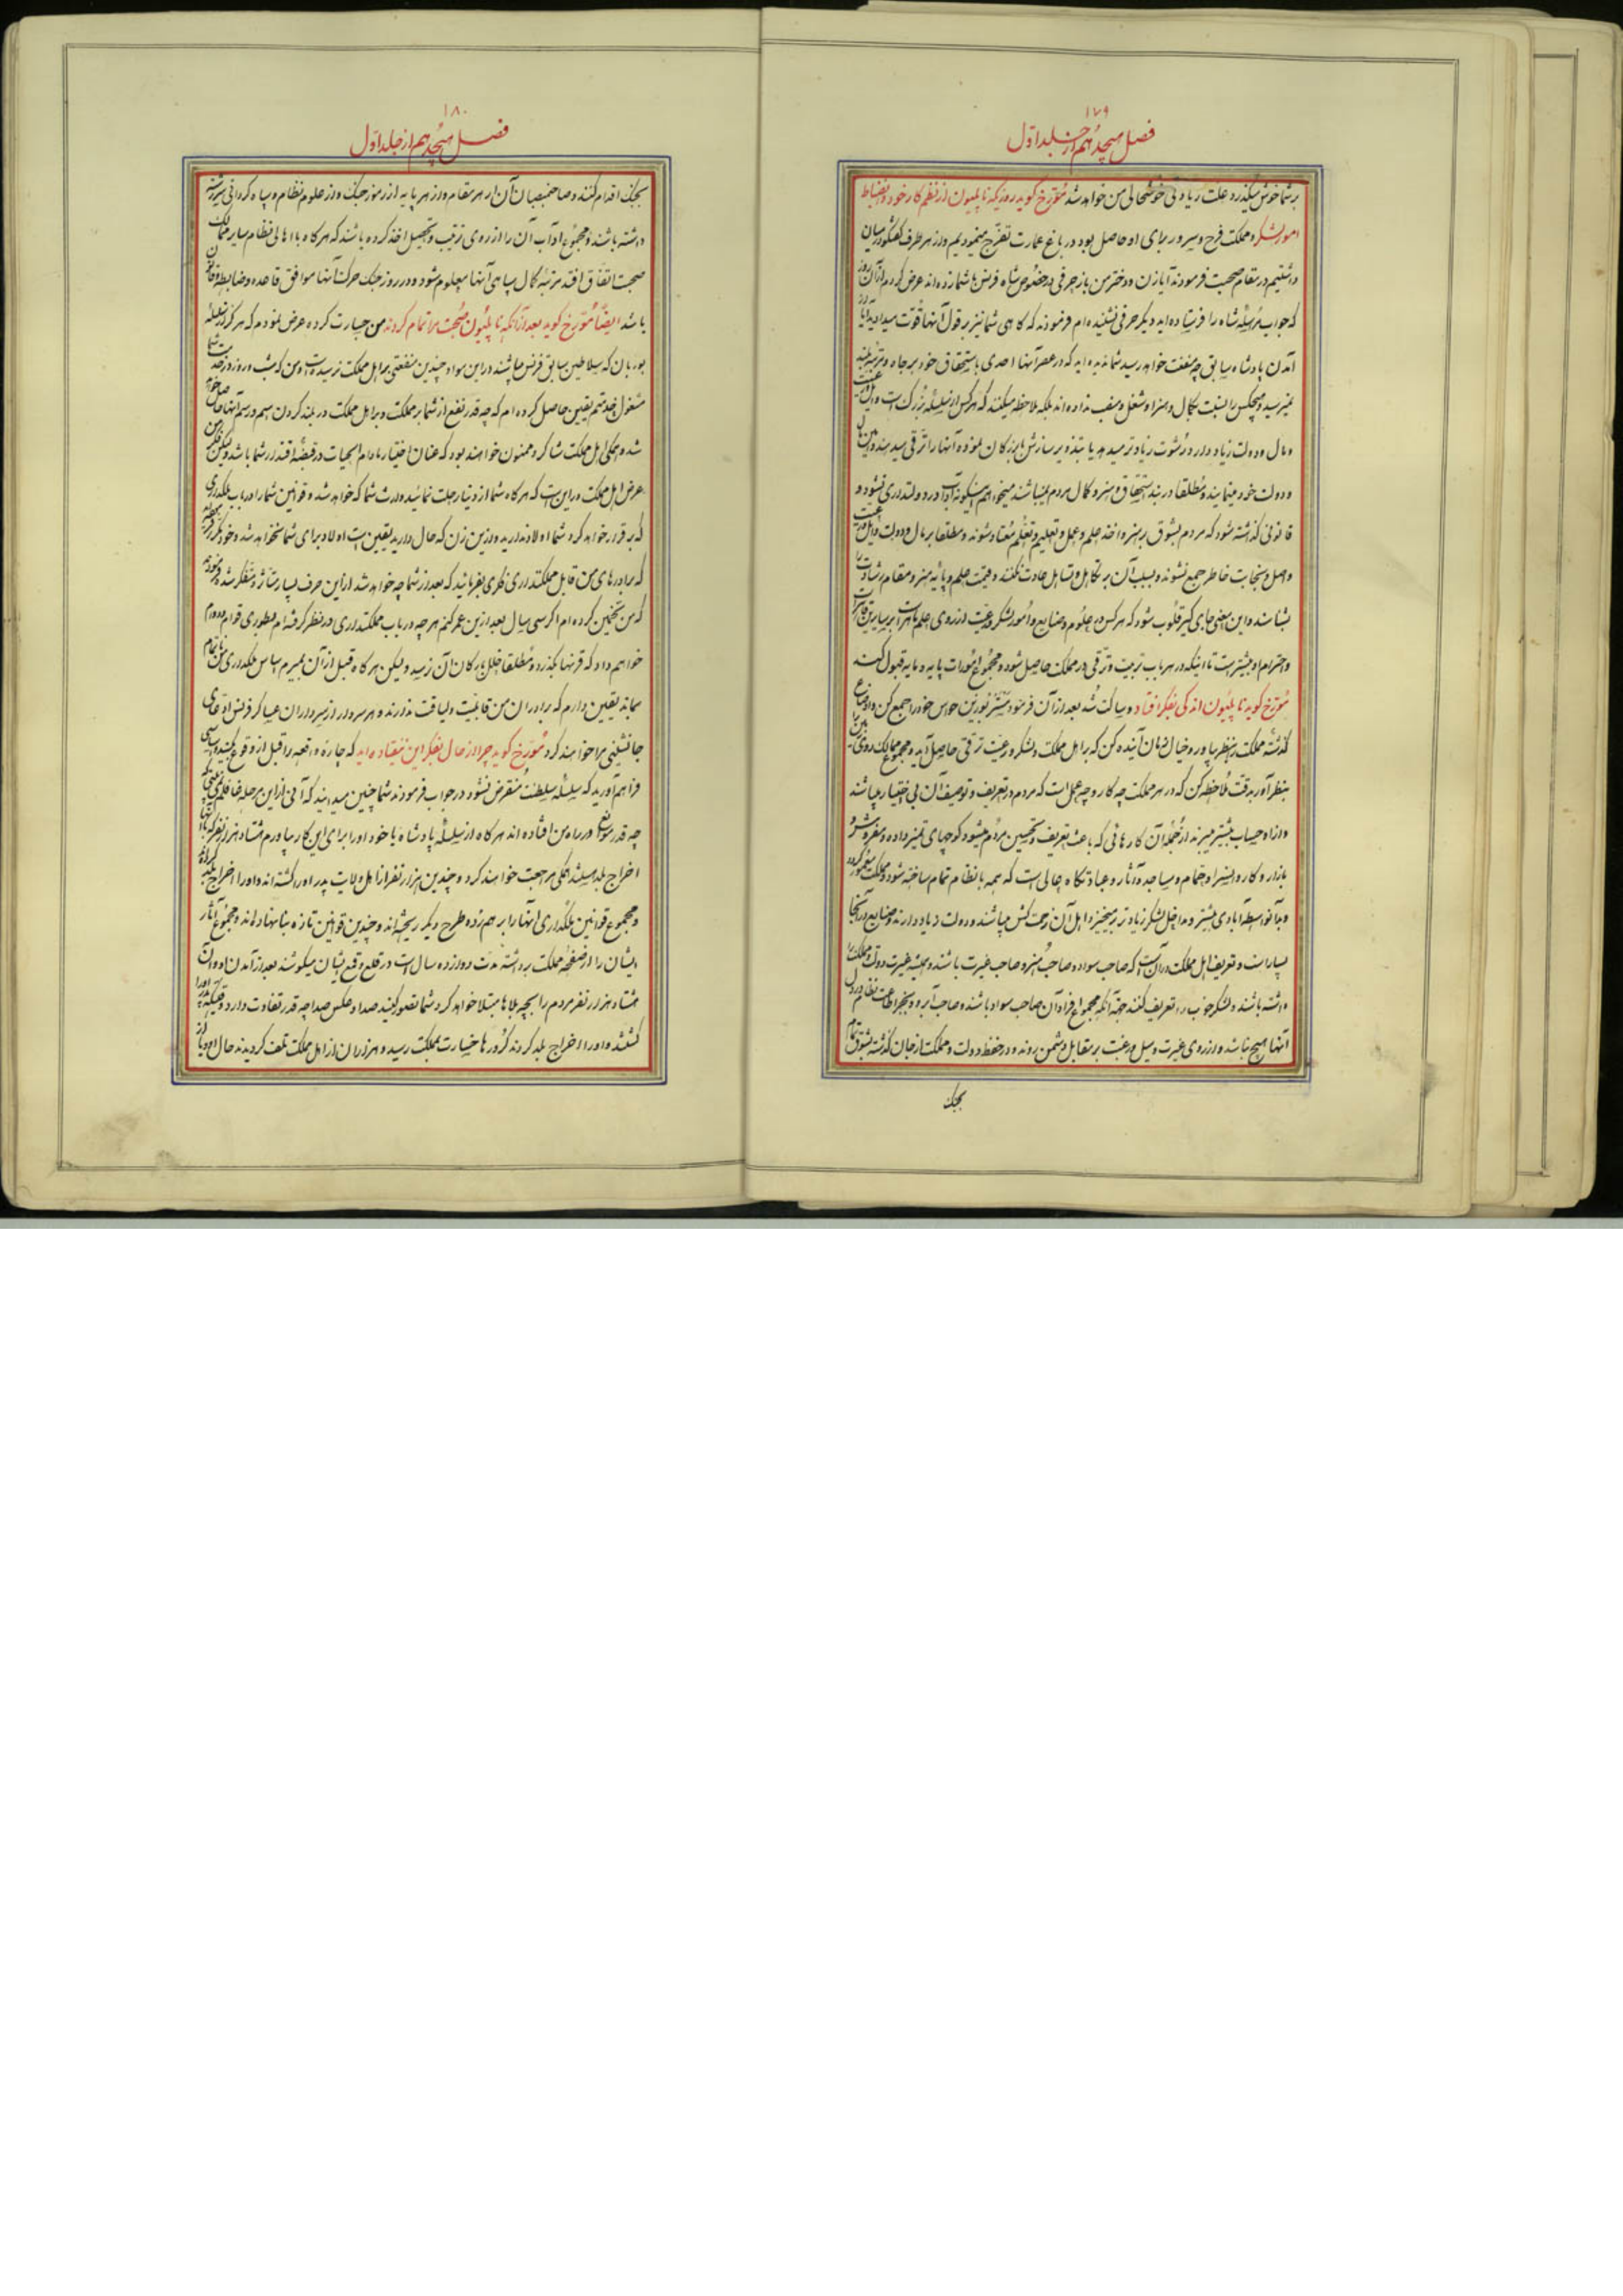 ۱۷۹
فصل هیجدهم از جلد اول
بر شما خوش میگذرد و علت زیادتی خوشحالی من خواهد شد مورخ گوید روزیکه ناپلیون از نظم کار خود و انضباط
امور لشکر و مملکت فرح و سرور برای او حاصل بود در باغ عمارت تفرج مینمودیم و از هر طرف گفتگو در میان
داشتیم در مقام صحبت فرمودند آیا زن و دختر من باز حرفی در خصوص شاه فرنس با شما زده‌اند عرض کردم از آن روز
که جواب مراسله شاه را فرستاده‌اید دیگر حرفی نشنیده‌ام فرمودند که گاهی شما نیز بر قول آنها قوت میدادید آیا از
آمدن پادشاه سابق چه منفعت خواهد رسید شما ندیده‌اید که در عصر آنها احدی باستحقاق خود بر جاه و مرتبه بلند
نمیرسید و هیچکس را نسبت بکمال و هنر او شغل و منصب نداده‌اند بلکه ملاحظه میکنند که هرکس از سلسله بزرگ است
و مال و دولت زیاد دارد و رشوت زیادتر میدهد یا بتدویر سازش با بزرگان نموده آنها را ترقی میدهند
و دولت خود مینمایند و مطلقا در بند استحقاق و هنر و کمال مردم نمیباشند میخواهم اینگونه آداب در دولتداری نشود و
قانونی گذاشته شود که مردم بشوق بر هنر و اخذ علم و عمل و تعلیم و تعلم معتاد شوند و مطلقا بر مال و دولت
و اصل و نجابت خاطر جمع نشوند و بسبب آن بر تکاهل و تساهل عادت نکنند و قیمت علم و پایه هنر و مقام
بشناسند و این معنی جای‌گیر قلوب شود که هرکس در علوم و صنایع و امور لشکر و رعیت از روی علم ماهر است بر سایرین
و احترام او بیشتر است تا اینکه در هر باب تربیت و ترقی در مملکت حاصل شود و مجموع امورات پایه و مایه قبول کند
مورخ گوید ناپلیون اندکی بفکر افتاد و ساکت شد بعد از آن فرمود مستر نوربن حواس خود را جمع کن و اوضاع
گذشته مملکت را بنظر بیاور و خیال زمان آینده کن که بر اهل مملکت و لشکر و رعیت ترقی حاصل آید و مجموع ممالک روی زمین را
بنظر آور بدقت ملاحظه کن که در هر مملکت چه کار و چه عمل است که مردم در تعریف و توصیف آن بی‌اختیار میباشند
و از او حساب بیشتر میبرند از جمله آن کارهائی که باعث تعریف و تحسین مردم میشود کوچهای تمیز داده و مفروش و
بازار و کاروانسرا و حمام و مساجد و آثار و عبادتگاه عالی است که همه بانتظام تمام ساخته شود و مملکت معمور کرده
و بآنواسطه آبادی بیشتر و مداخل لشکر زیادتر برمیخیزد و اهل آن زحمت‌کش میباشند و دولت زیاد دارند و صنایع در آنجا
بسیار است و تعریف اهل مملکت در آن است که صاحب سواد و صاحب هنر و صاحب غیرت باشند و همیشه غیرت دولت و مملکت را
داشته باشند و لشکر خوب را تعریف کنند جز آنکه مجموع افراد آن صاحب سواد باشند و صاحب آبرو و بجز اطاعت نظام در دل
آنها هیچ نباشد و از روی غیرت و میل و رغبت بر مقابل دشمن روند و در حفظ دولت و مملکت از جان گذشته بشوق تمام
بجنک
۱۸۰
فصل هیجدهم از جلد اول
بجنک اقدام کنند و صاحبمنصبان آن از هر مقام و از هر پایه از رموز جنک و از علوم نظام و سپاه‌گردانی سررشته
داشته باشند و مجموع آداب آن را از روی ترتیب و تحصیل اخذ کرده باشند که هرگاه با اهالی نظام سایر ممالک
صحبت اتفاق افتد مرتبه کمال سپاهی آنها معلوم شود و در روز جنک حرکت آنها موافق قاعده و ضابطه و قانون
باشد ایضا مورخ گوید بعد از آنکه ناپلیون صحبت را تمام کردند من جسارت کرده عرض نمودم که هرگز از سلسله
بوربان که سلاطین سابق فرنس میباشند در این مواد چندین منفعتی بر اهل مملکت نرسیده است و من که شب و روز در خدمت شما
مشغول خدمتم یقین حاصل کرده‌ام که چه قدر نفع از شما بر مملکت و بر اهل مملکت در بلند کردن اسم و رسم آنها حاصل خواهد
شد و همگی اهل مملکت شاکر و ممنون خواهند بود که عنان اختیار مادام الحیات در قبضه اقتدار شما باشد ولیکن
عرض اهل مملکت در این است که هرگاه شما از دنیا رحلت نمائید وارث شما که خواهد شد و قوانین شما را در باب ملکداری
که برقرار خواهد کرد شما اولاد ندارید و از این زن که حال دارید یقین است اولاد برای شما نخواهد شد و خود مکرر فرموده‌اید
که برادرهای من قابل مملکتداری نیستند فکری بفرمائید که بعد از شما چه خواهد شد از این حرف بسیار متأثر و متفکر شد و فرمودند
که من تخمین کرده‌ام اگر سی سال بعد از این عمر کنم هر چه در باب مملکتداری در نظر گرفته‌ام بطوری قوام و دوام
خواهم داد که قرنها بگذرد و مطلقا خلل بارکان آن نرسد ولیکن هرگاه قبل از آن بمیرم اساس ملکداری من ناتمام
بماند یقین دارم که برادران من قابلیت و لیاقت ندارند و هر سردار از سرداران عساکر فرنس ادعای
جانشینی مرا خواهند کرد مورخ گوید چرا از حال بفکر این نیفتاده‌اید که چاره واقعه را قبل از وقوع کنید و اسبابی
فراهم آورید که سلسله سلطنت منقرض نشود در جواب فرمودند شما چنین میدانید که آنی از این مرحله غافلم نمیدانید که
چه قدر موانع در راه من افتاده‌اند هرگاه از سلسله پادشاه یا خود او را برای این کار بیاورم هشتاد هزار نفر که با آنها
اخراج بلد میباشند همگی مراجعت خواهند کرد و چندین هزار نفر از اهل ولایت پدر او را کشته‌اند و او را اخراج بلد کرده
و مجموع قوانین ملکداری آنها را بر هم زده طرح دیگر ریخته‌اند و چندین قوانین تازه بنا نهاده‌اند و مجموع آثار
ایشان را از صفحه مملکت برداشته مدت دوازده سال است در قلع و قمع ایشان میکوشند بعد از آمدن او و آن
هشتاد هزار نفر مردم را بچه بلاها مبتلا خواهد کرد شما تصور کنید صدا و عکس صدا چه قدر تفاوت دارد وقتیکه پدر او را
کشتند و او را اخراج بلد کردند کرورها خسارت بمملکت رسید و هزاران از اهل مملکت تلف گردیدند حال